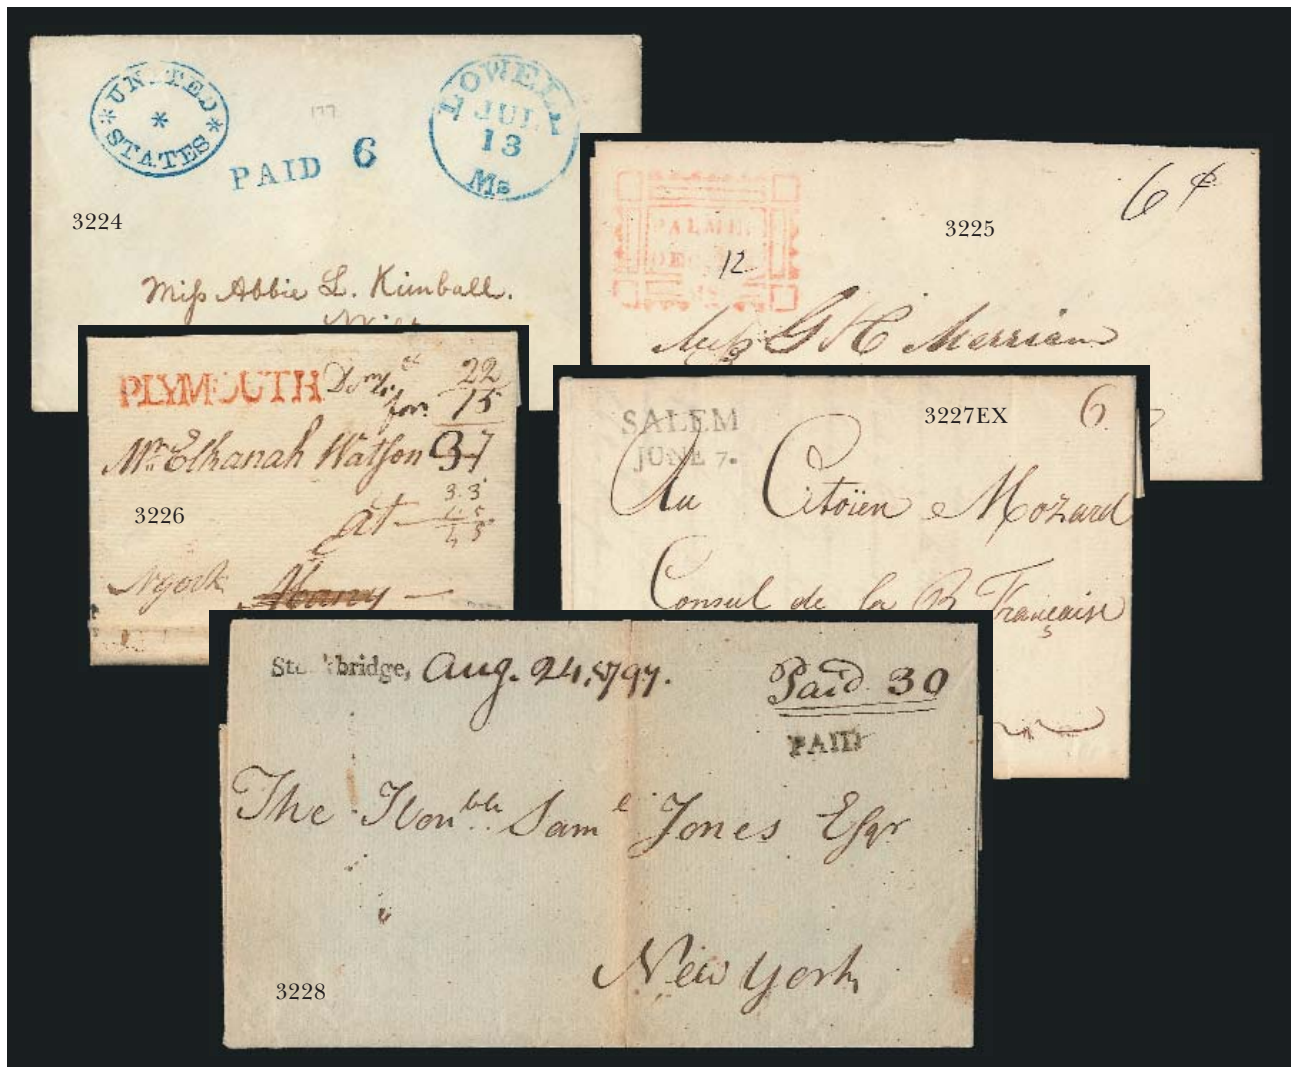 UNITED
*
STATES
177
PAID 6
LOWELL
JUL
13
Ms
3224
Miss Abbie L. Kimball.
PALME
DEC
12
6¢
3225
G & C Merriam
PLYMOUTH
22
for 15
37
Mr. Elkanah Watson
3.3
at
3226
N york Albany
SALEM
JUNE 7.
3227EX
6
Au Citoïen Mozard
Consul de la R. Française
Stockbridge, Aug. 24, 1797.
Paid 30
PAID
The Honble Saml Jones Esqr
New York
3228